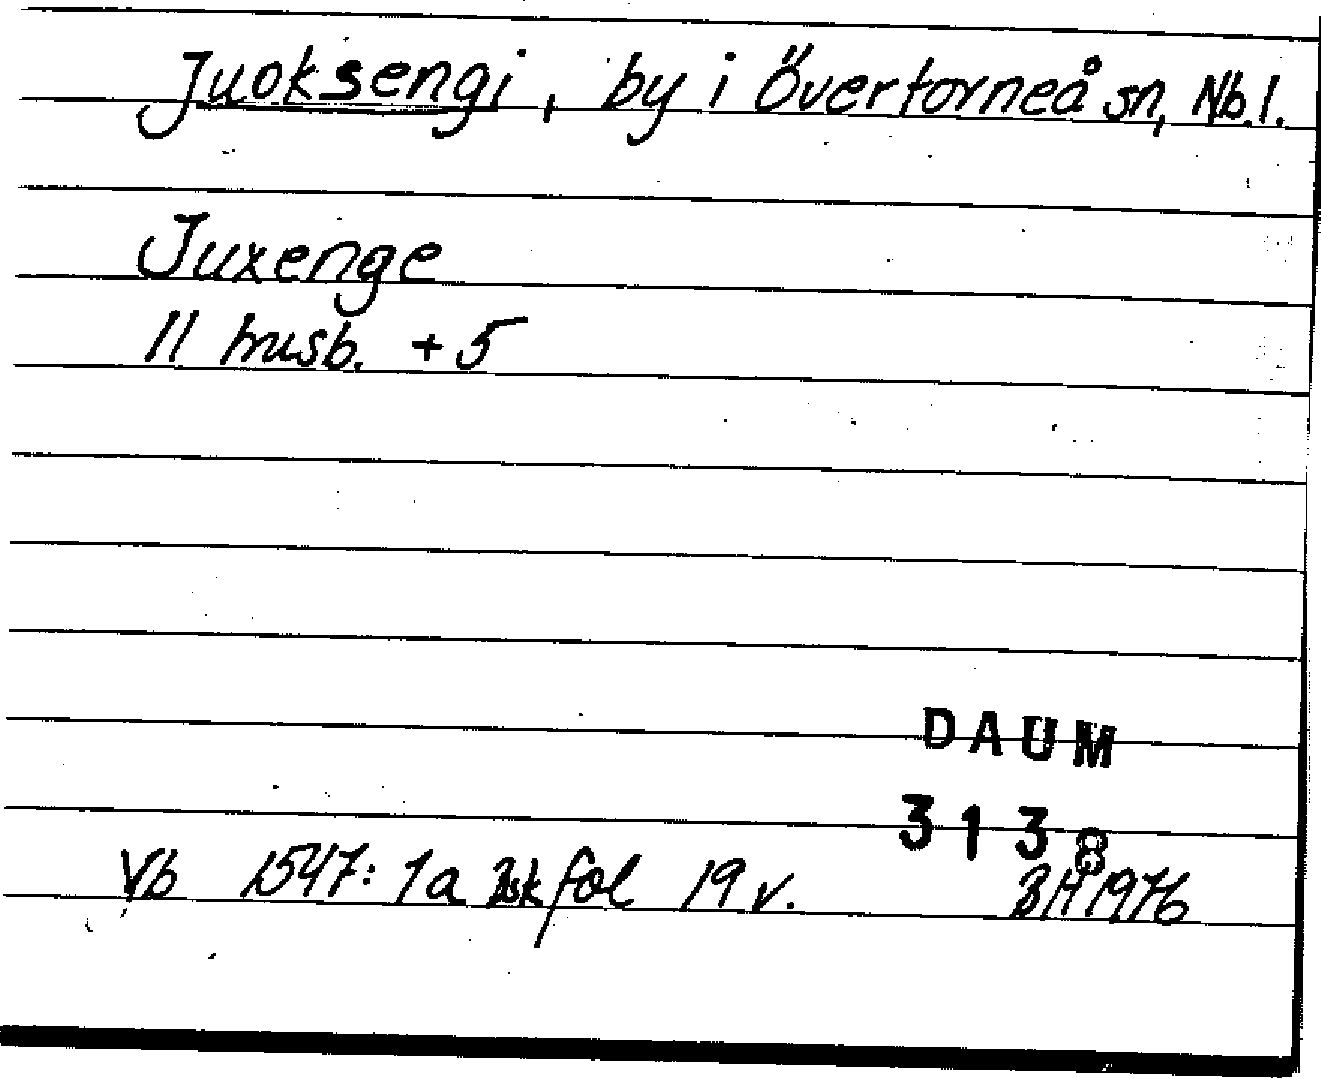 Juoksengi, by i Övertorneå sn, Nb.l.
Juxenge
11 husb. + 5
DAUM
3138
Vb 1547: 1a bsk fol 19 v. BH 1976